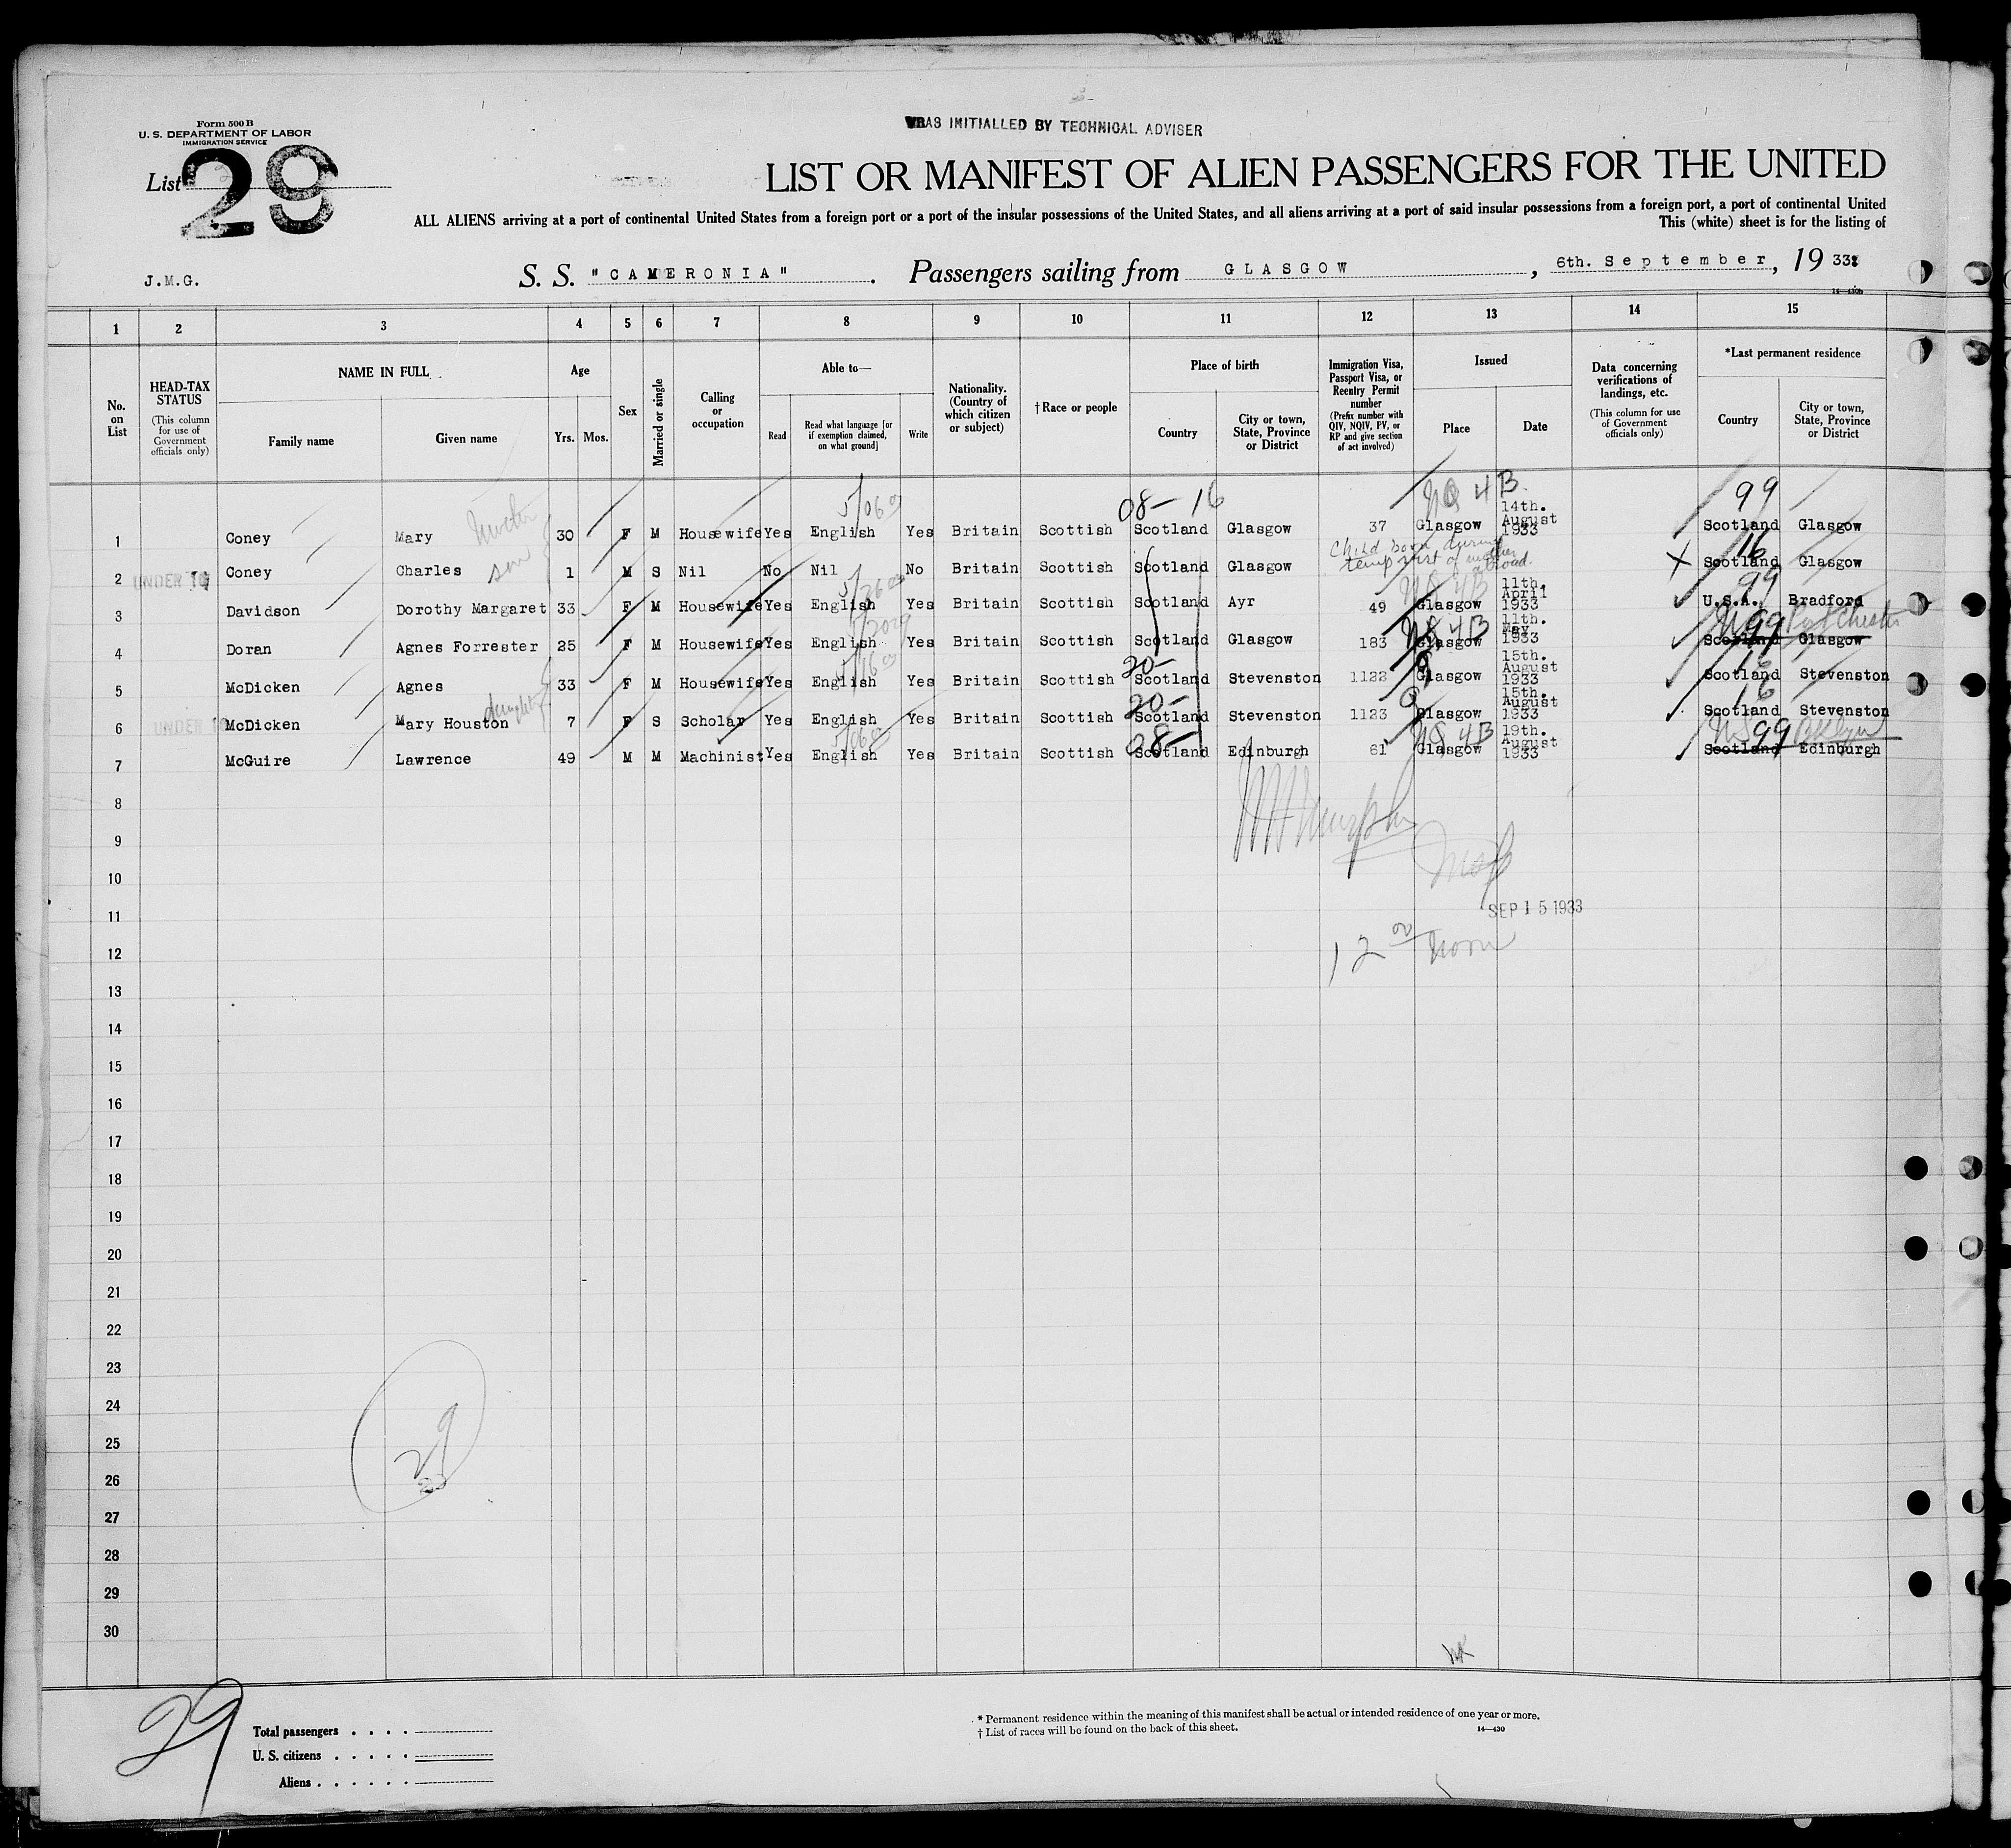 Form 500 B
U. S. DEPARTMENT OF LABOR
IMMIGRATION SERVICE
List 29
WAS INITIALLED BY TECHNICAL ADVISER
LIST OR MANIFEST OF ALIEN PASSENGERS FOR THE UNITED
ALL ALIENS arriving at a port of continental United States from a foreign port or a port of the insular possessions of the United States, and all aliens arriving at a port of said insular possessions from a foreign port, a port of continental United
This (white) sheet is for the listing of
J.M.G. S. S. "CAMERONIA". Passengers sailing from GLASGOW, 6th. September, 1933
1 2 3 4 5 6 7 8 9 10 11 12 13 14 15
No. on List
HEAD-TAX STATUS (This column for use of Government officials only)
NAME IN FULL
Family name Given name
Age
Yrs. Mos.
Sex
Married or single
Calling or occupation
Able to—
Read Read what language [or if exemption claimed, on what ground] Write
Nationality. (Country of which citizen or subject)
†Race or people
Place of birth
Country City or town, State, Province or District
Immigration Visa, Passport Visa, or Reentry Permit number (Prefix number with QIV, NQIV, PV, or RP and give section of act involved)
Issued
Place Date
Data concerning verifications of landings, etc. (This column for use of Government officials only)
*Last permanent residence
Country City or town, State, Province or District
5/06 08— 16 NQ 4B. 99
1 Coney Mary 30 F M Housewife Yes English Yes Britain Scottish Scotland Glasgow 37 Glasgow 14th. August 1933 Scotland Glasgow
Child born during temp visit of mother abroad. 16
2 UNDER 16 Coney Charles son 1 M S Nil No Nil No Britain Scottish Scotland Glasgow X Scotland Glasgow
4B 99
3 Davidson Dorothy Margaret 33 F M Housewife Yes English Yes Britain Scottish Scotland Ayr 49 Glasgow 11th. April 1933 U.S.A. Bradford
4B 99 Port Chester
4 Doran Agnes Forrester 25 F M Housewife Yes English Yes Britain Scottish Scotland Glasgow 183 Glasgow 11th. May 1933 Scotland Glasgow
20— Q 16
5 McDicken Agnes 33 F M Housewife Yes English Yes Britain Scottish Scotland Stevenston 1122 Glasgow 15th. August 1933 Scotland Stevenston
daughter 20— Q 16
6 UNDER 16 McDicken Mary Houston 7 F S Scholar Yes English Yes Britain Scottish Scotland Stevenston 1123 Glasgow 15th. August 1933 Scotland Stevenston
08— 4B 99
7 McGuire Lawrence 49 M M Machinist Yes English Yes Britain Scottish Scotland Edinburgh 61 Glasgow 19th. August 1933 Scotland Edinburgh
8
Murphy
9
10
11 SEP 15 1933
12 12 00 noon
13
14
15
16
17
18
19
20
21
22
23
24
25 29
26
27
28
29
30
29
Total passengers
U. S. citizens
Aliens
* Permanent residence within the meaning of this manifest shall be actual or intended residence of one year or more.
† List of races will be found on the back of this sheet. 14—430